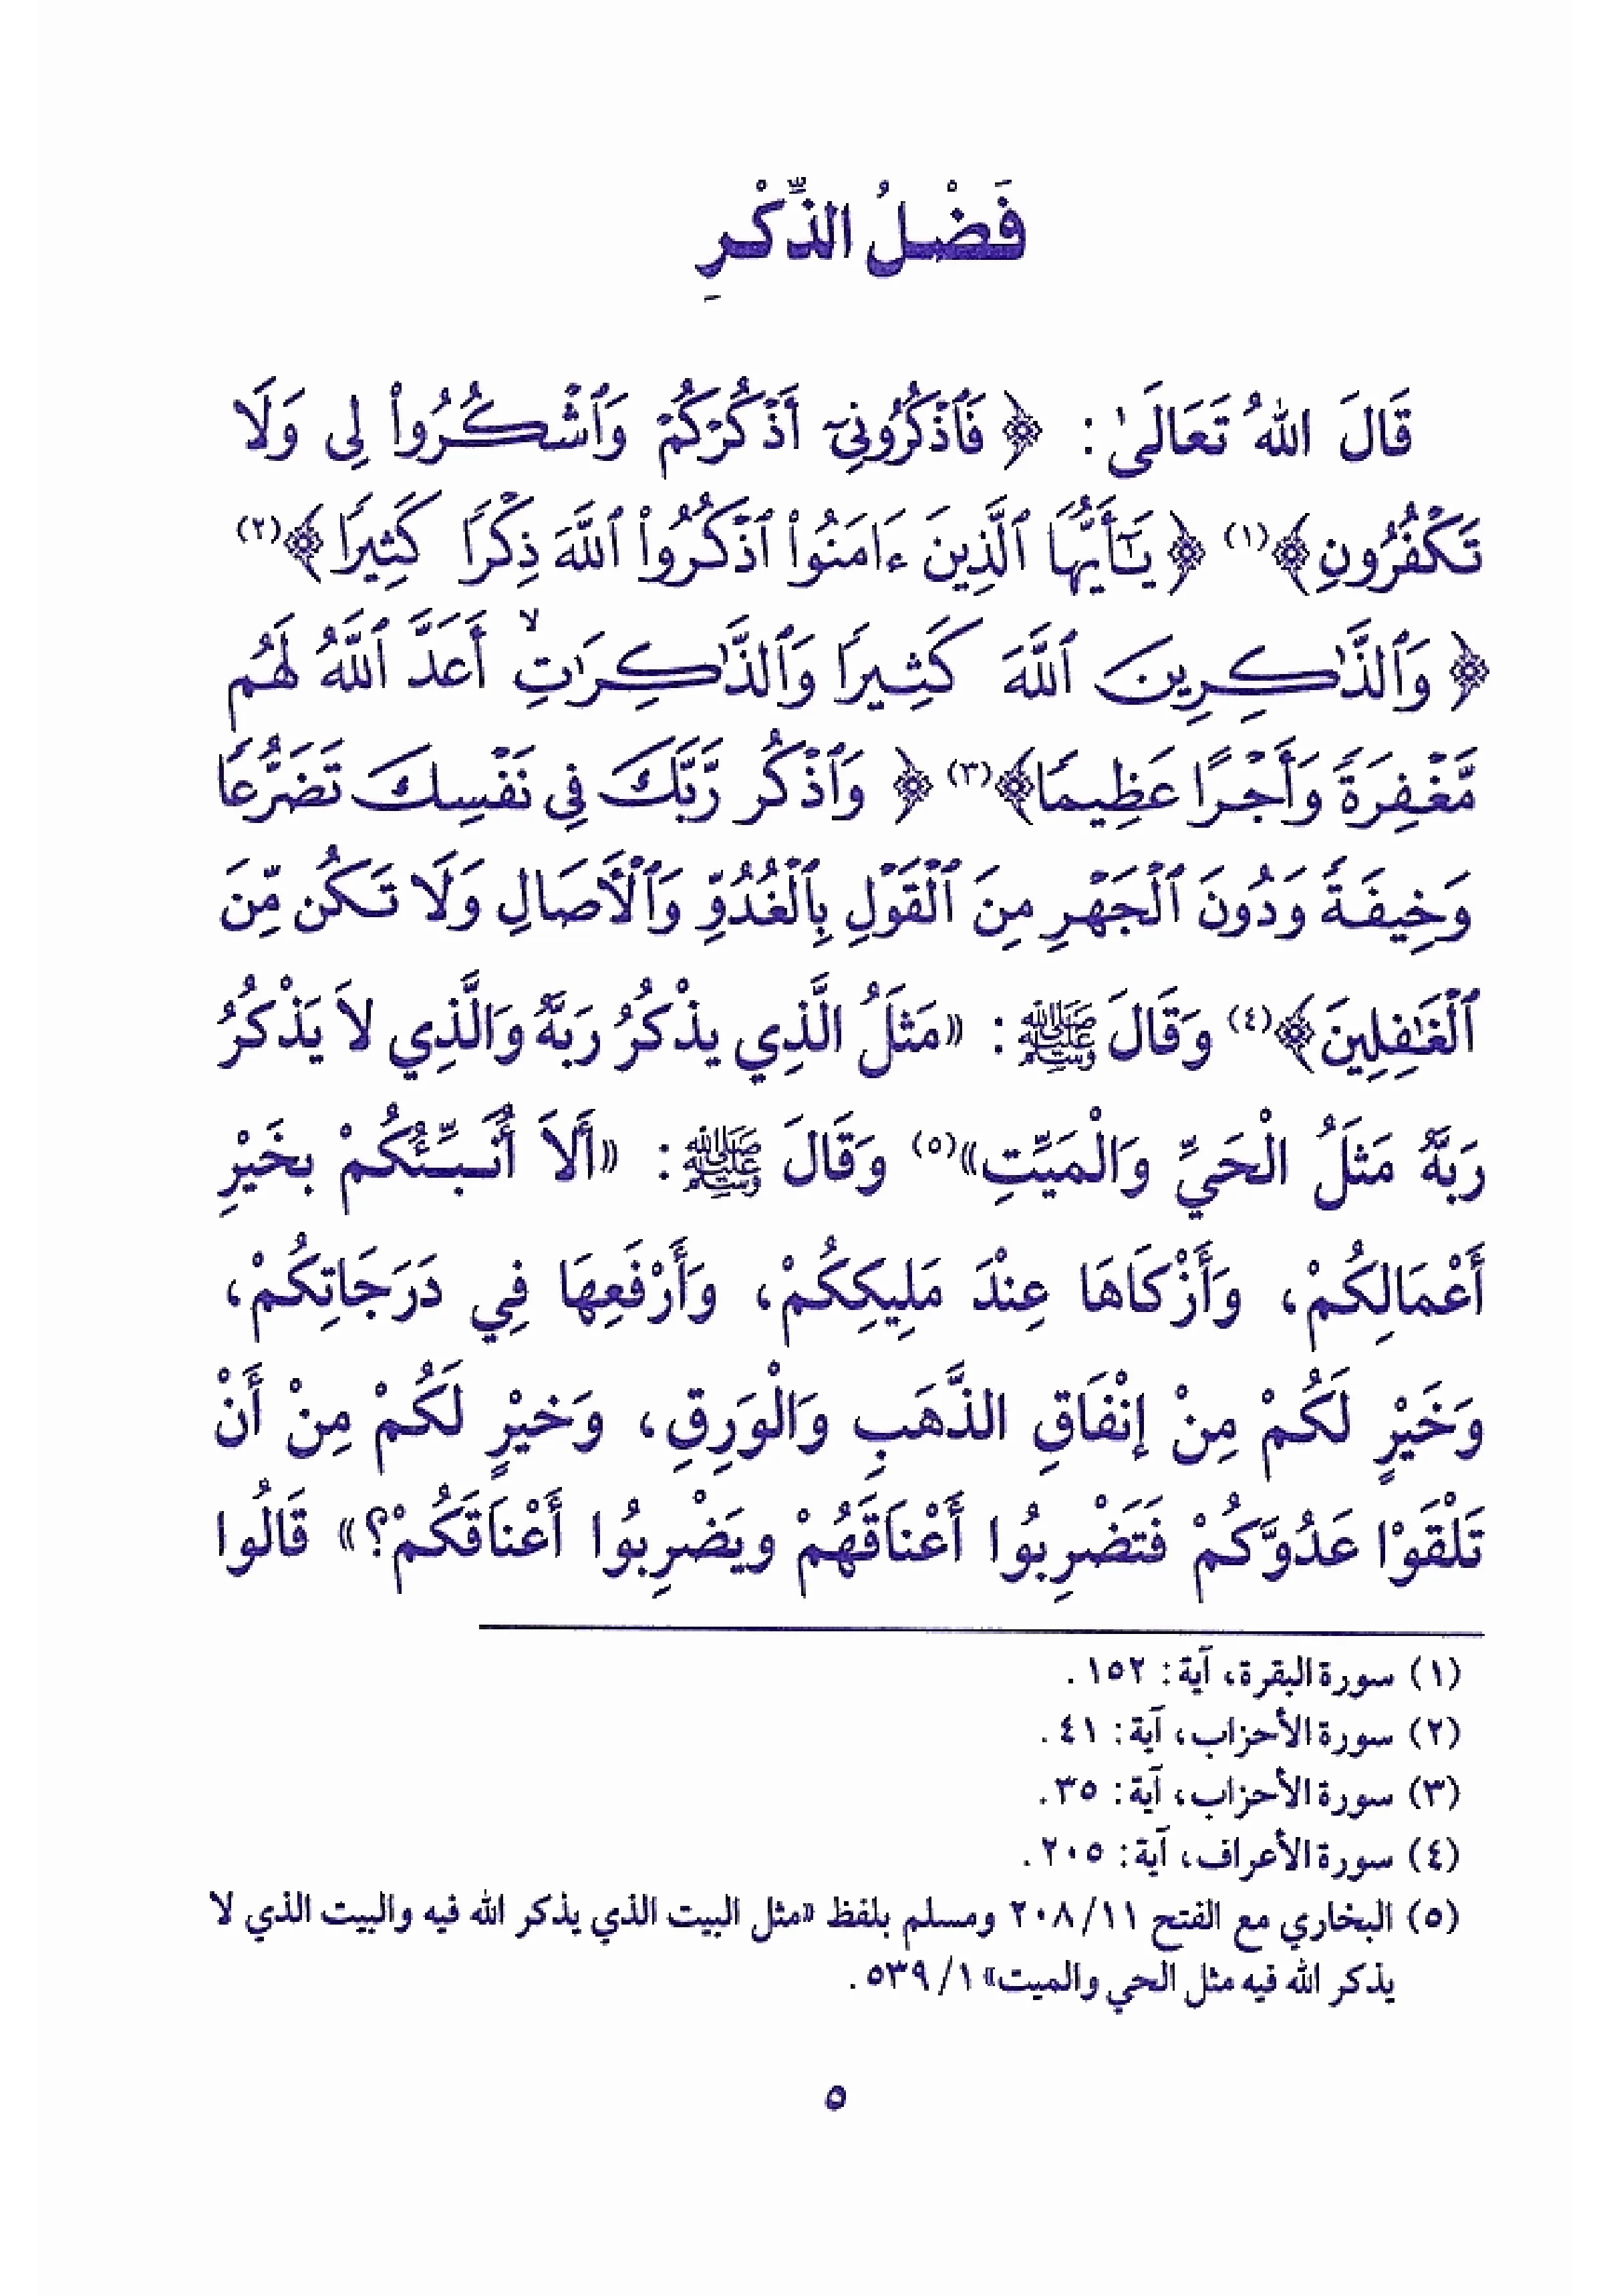 فَضْلُ الذِّكْرِ
قَالَ اللهُ تَعَالَىٰ: ﴿ فَٱذْكُرُونِىٓ أَذْكُرْكُمْ وَٱشْكُرُوا۟ لِى وَلَا
تَكْفُرُونِ﴾(١) ﴿ يَـٰٓأَيُّهَا ٱلَّذِينَ ءَامَنُوا۟ ٱذْكُرُوا۟ ٱللَّهَ ذِكْرًا كَثِيرًا﴾(٢)
﴿ وَٱلذَّٰكِرِينَ ٱللَّهَ كَثِيرًا وَٱلذَّٰكِرَٰتِۙ أَعَدَّ ٱللَّهُ لَهُم
مَّغْفِرَةً وَأَجْرًا عَظِيمًا﴾(٣) ﴿ وَٱذْكُر رَّبَّكَ فِى نَفْسِكَ تَضَرُّعًا
وَخِيفَةً وَدُونَ ٱلْجَهْرِ مِنَ ٱلْقَوْلِ بِٱلْغُدُوِّ وَٱلْأَصَالِ وَلَا تَكُن مِّنَ
ٱلْغَـٰفِلِينَ﴾(٤) وَقَالَ ﷺ: «مَثَلُ الَّذِي يذْكُرُ رَبَّهُ وَالَّذِي لاَ يَذْكُرُ
رَبَّهُ مَثَلُ الْحَيِّ وَالْمَيِّتِ»(٥) وَقَالَ ﷺ: «أَلاَ أُنَبِّئُكُمْ بخَيْرِ
أَعْمَالِكُمْ، وَأَزْكَاهَا عِنْدَ مَلِيكِكُمْ، وَأَرْفَعِهَا فِي دَرَجَاتِكُمْ،
وَخَيْرٍ لَكُمْ مِنْ إنْفَاقِ الذَّهَبِ وَالْوَرِقِ، وَخيْرٍ لَكُمْ مِنْ أَنْ
تَلْقَوْا عَدُوَّكُمْ فَتَضْرِبُوا أَعْنَاقَهُمْ ويَضْرِبُوا أَعْنَاقَكُمْ؟» قَالُوا
(١) سورة البقرة، آية: ١٥٢.
(٢) سورة الأحزاب، آية: ٤١.
(٣) سورة الأحزاب، آية: ٣٥.
(٤) سورة الأعراف، آية: ٢٠٥.
(٥) البخاري مع الفتح ٢٠٨/١١ ومسلم بلفظ «مثل البيت الذي يذكر الله فيه والبيت الذي لا
يذكر الله فيه مثل الحي والميت» ٥٣٩/١.
٥